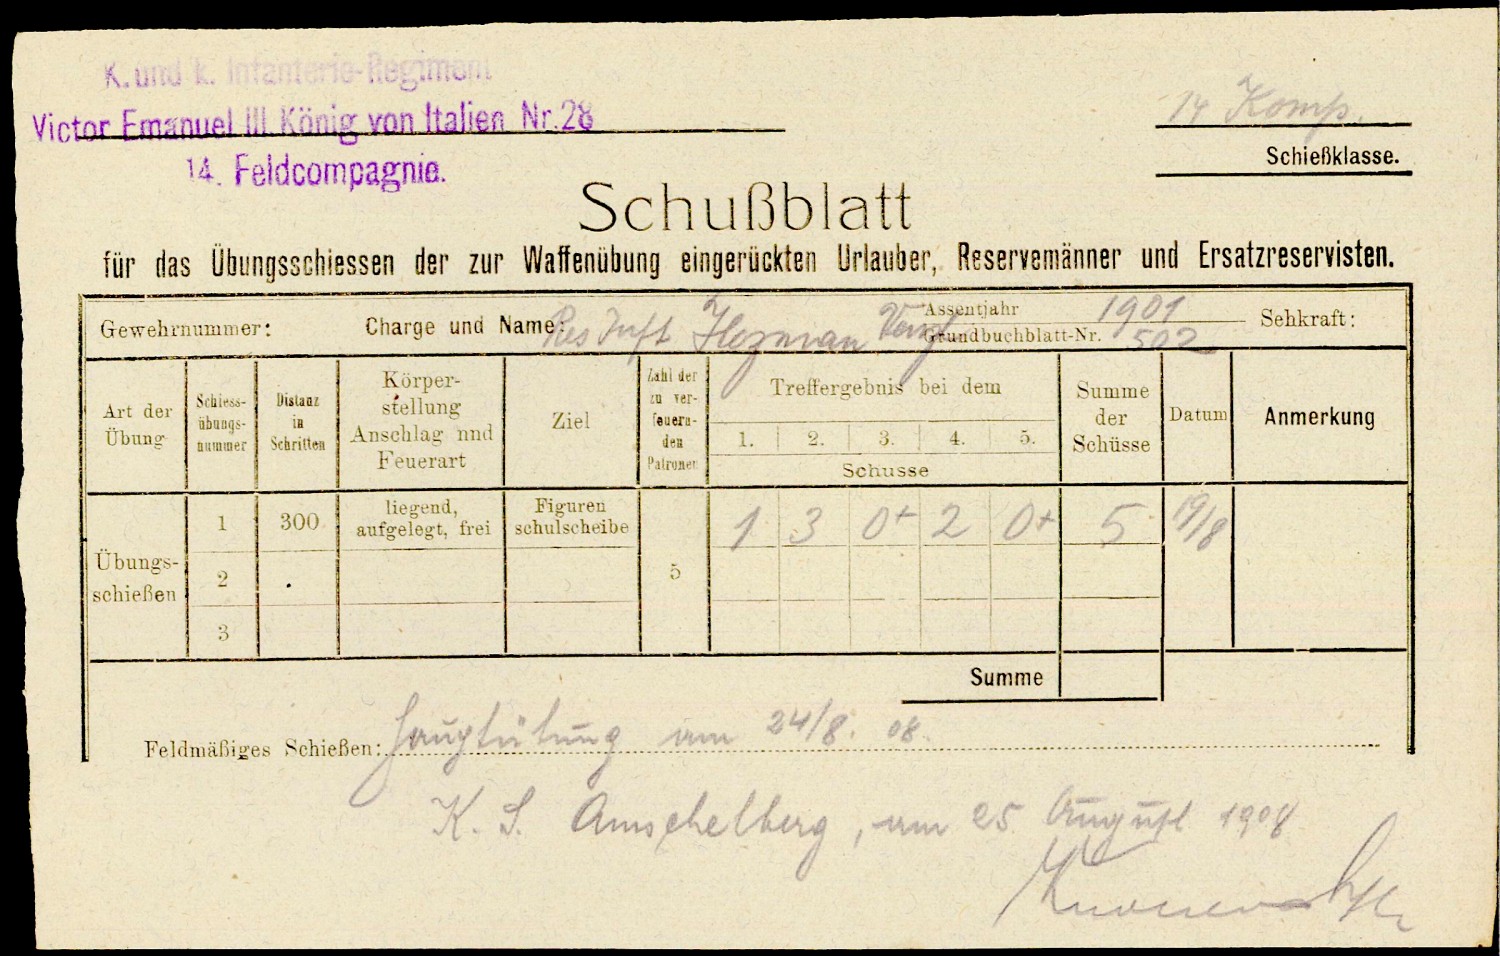 K. und k. Infanterie-Regiment
Victor Emanuel III. König von Italien Nr. 28
14. Feldcompagnie.
14 Komp.
Schießklasse.
Schußblatt
für das Übungsschiessen der zur Waffenübung eingerückten Urlauber, Reservemänner und Ersatzreservisten.
Gewehrnummer: Charge und Name: Res Inft
Assentjahr 1901
Grundbuchblatt-Nr. 502
Sehkraft:
Art der Übung
Schiess-übungs-nummer
Distanz in Schritten
Körper-stellung Anschlag nnd Feuerart
Ziel
Zahl der zu ver-feuern-den Patronen
Treffergebnis bei dem
1. 2. 3. 4. 5.
Schusse
Summe der Schüsse
Datum
Anmerkung
Übungs-schießen
1 300 liegend, aufgelegt, frei Figuren schulscheibe 1 3 0+ 2 0+ 5 19/8
2 5
3
Summe
Feldmäßiges Schießen: Hauptübung am 24/8. 08.
K. S. Amschelberg, am 25 August 1908